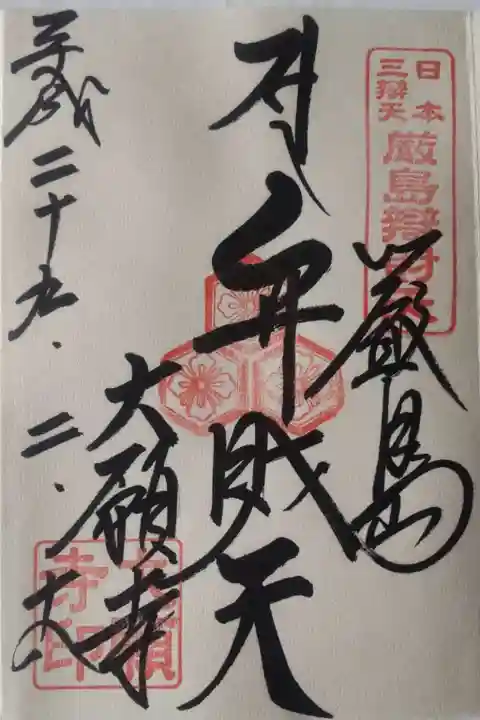 日本
三辯天
厳島辯財天
厳島
弁財天
大願寺
大願寺印
平成二十九・二・